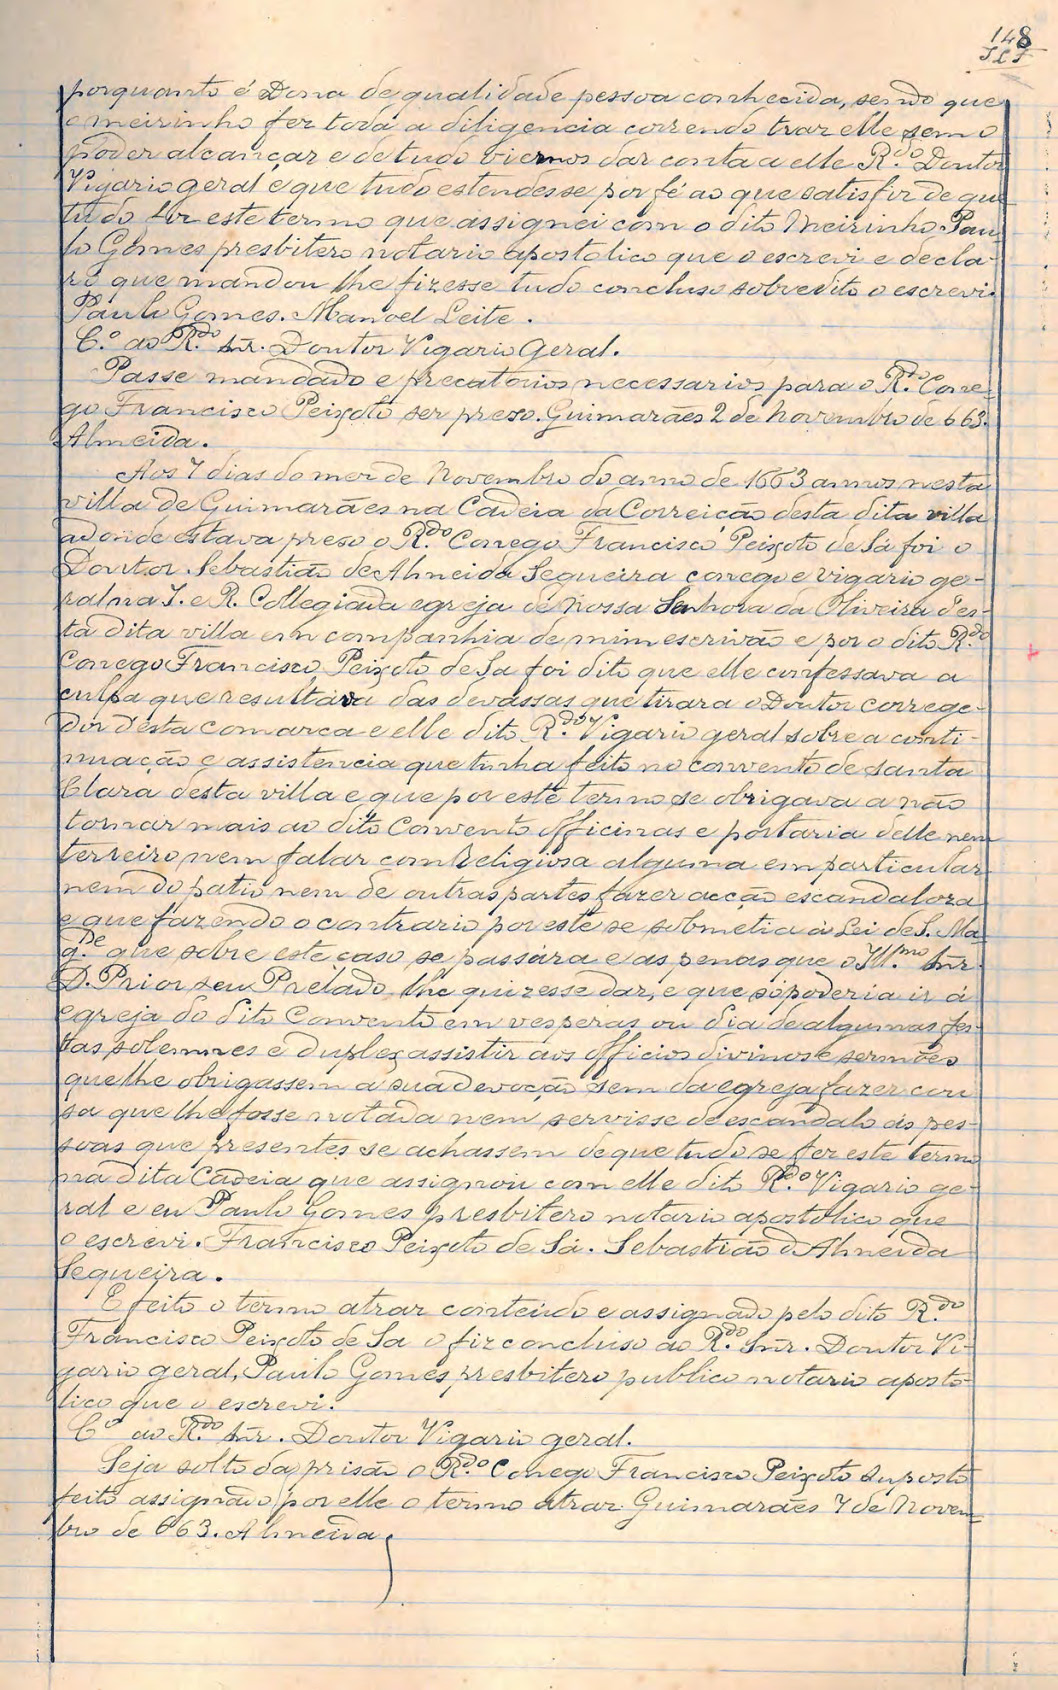 148
porquanto é Dona de qualidade pessoa conhecida, sendo que
o meirinho fez toda a diligencia correndo traz elle sem o
poder alcançar e de tudo viemos dar conta a elle R.do Doutor
Vigario geral e que tudo estendesse por fé ao que satisfiz de que
tudo fiz este termo que assignei com o dito Meirinho. Pau-
lo Gomes presbitero notario apostolico que o escrevi e decla-
ro que mandou lhe fizesse tudo concluso sobredito o escrevi.
Paulo Gomes. Manoel Leite.
C.o ao R.do Snr. Doutor Vigario Geral.
Passe mandado e precatorios necessarios para o R.do Cone-
go Francisco Peixoto ser preso. Guimarães 2 de Novembro de 663.
Almeida.
Aos 7 dias do mez de Novembro do anno de 1663 annos nesta
villa de Guimarães na Cadeia da Correição desta dita villa
adonde estava preso o R.do Conego Francisco Peixoto de Sá foi o
Doutor Sebastião de Almeida Sequeira conego e vigario ge-
ral na I. e R. Collegiada egreja de Nossa Senhora da Oliveira d'es-
ta dita villa em companhia de mim escrivão e por o dito R.do
Conego Francisco Peixoto de Sa foi dito que elle confessava a
culpa que resultava das devassas que tirara o Doutor correge-
dor d'esta comarca e elle dito R.do Vigario geral sobre a conti-
nuação e assistencia que tinha feito no convento de santa
Clara desta villa e que por este termo se obrigava a não
tornar mais ao dito Convento officinas e portaria delle nem
terreiro, nem falar com Religiosa alguma em particular
nem do patio nem de outras partes fazer acção escandalosa
e que fazendo o contrario por este se submetia á Lei de S. Ma-
g.de que sobre este caso se passára e as penas que o Ill.mo Snr.
D. Prior seu Prelado lhe quizesse dar, e que só poderia ir á
egreja do dito Convento em vesperas ou dia de algumas fes-
tas solemnes e duplex assistir aos officios divinos e sermões
que lhe obrigassem a sua devoção sem da egreja fazer cou
sa que lhe fosse notada nem servisse de escandalo ás pes-
soas que presentes se achassem de que tudo se fez este termo
na dita Cadeia que assignou com elle dito R.do Vigario ge-
ral e eu Paulo Gomes presbitero notario apostolico que
o escrevi. Francisco Peixoto de Sá. Sebastião d'Almeida
Sequeira.
E feito o termo atraz conteúdo e assignado pelo dito R.do
Francisco Peixoto de Sa o fiz concluso ao R.do Snr. Doutor Vi-
gario geral, Paulo Gomes presbitero publico notario aposto-
lico que o escrevi.
C.o ao R.do Snr. Doutor Vigario geral.
Seja solto da prisão o R.do Conego Francisco Peixoto suposto
feito assignado por elle o termo atraz Guimarães 7 de Novem-
bro de 663. Almeida